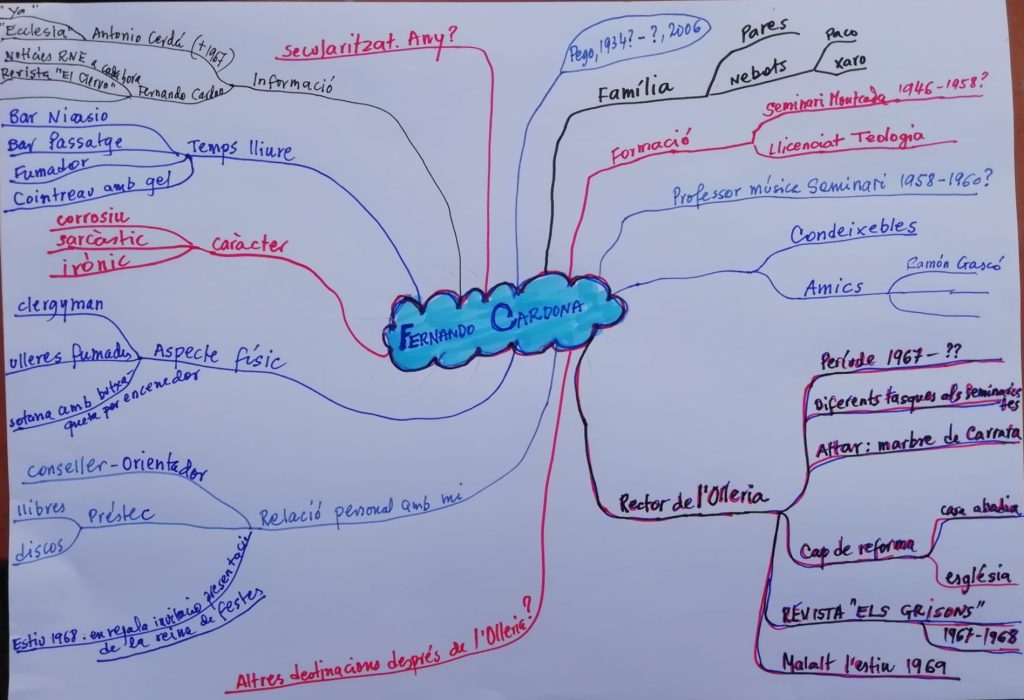 "Ya"
"Ecclesia"
Antonio Cerdá (+1967)
Notícies RNE a cada hora
Revista "El Ciervo"
Fernando Cardona
Informació
Bar Nicasio
Bar Passatge
Fumador
Cointreau amb gel
Temps lliure
corrosiu
sarcàstic
irònic
caràcter
clergyman
ulleres fumades
sotana amb butxa-
queta per encenedor
Aspecte físic
conseller-Orientador
llibres
discos
Préstec
Relació personal amb mi
Estiu 1968: em regala invitació presentació
de la reina de festes
Altres destinacions després de l'Olleria?
secularitzat. Any?
Pego, 1934? - ?, 2006
Família
Pares
Nebots
Paco
Xaro
Formació
Seminari Moncada 1946-1958?
Llicenciat Teologia
Professor música Seminari 1958-1960?
Condeixebles
Amics
Ramón Gascó
FERNANDO CARDONA
Rector de l'Olleria
Període 1967-??
Diferents tasques als seminaristes
Altar: marbre de Carrara
Cap de reforma
casa abadia
església
REVISTA "ELS GRISONS"
1967-1968
Malalt l'estiu 1969